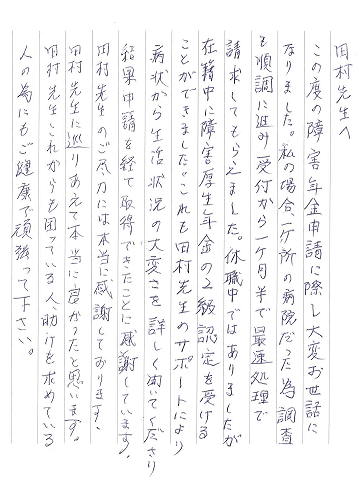 田村先生へ
この度の障害年金申請に際し大変お世話に
なりました。私の場合一ヶ所の病院だった為調査
も順調に進み受付から一ヶ月半で最速処理で
請求してもらえました。休職中ではありましたが
在籍中に障害厚生年金の2級認定を受ける
ことができました。これも田村先生のサポートにより
病状から生活状況の大変さを詳しく聞いてくださり
結果申請を経て取得できたことに感謝しています。
田村先生のご尽力には本当に感謝しております。
田村先生に巡りあえて本当に良かったと思います。
田村先生これからも困っている人助けを求めている
人の為にもご健康で頑張って下さい。